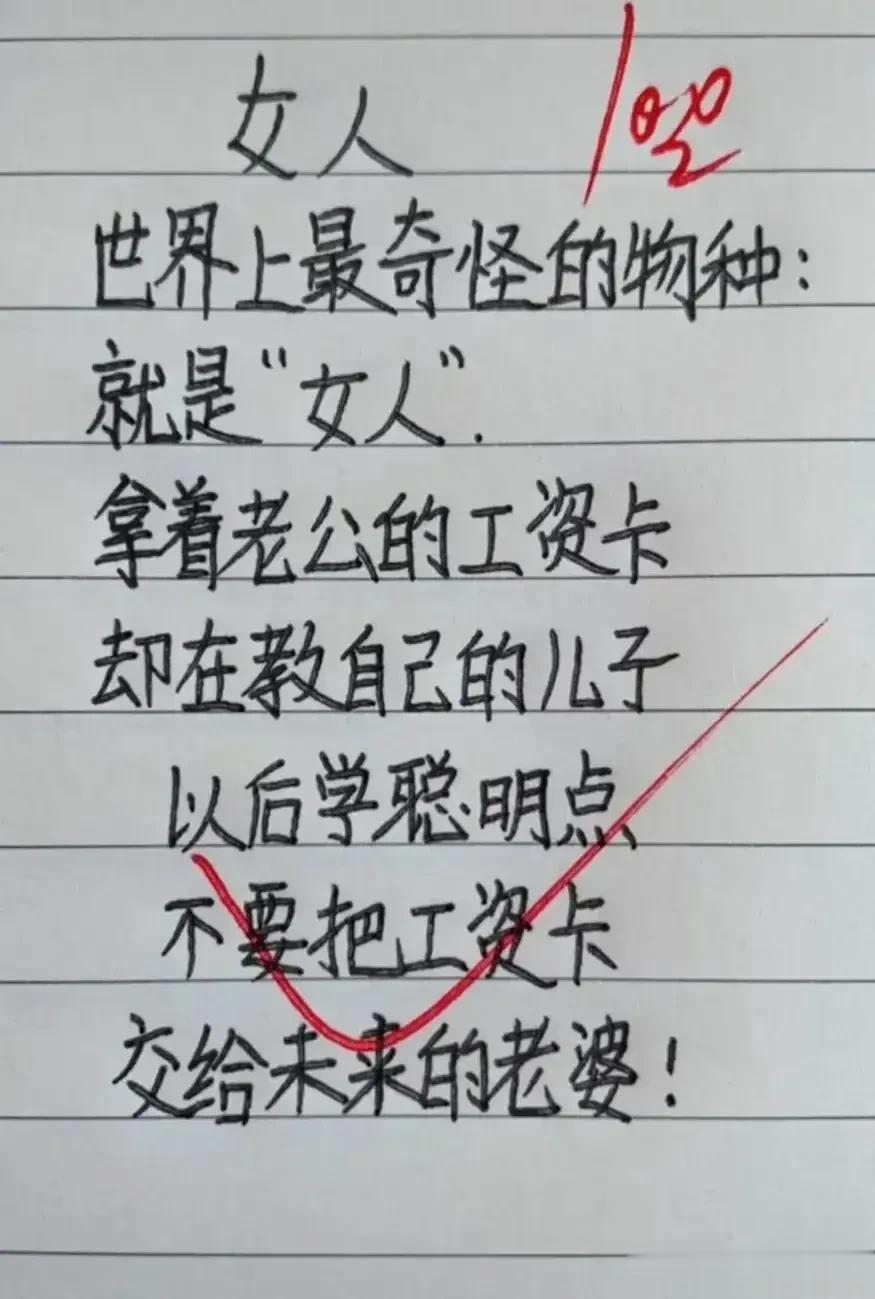 女人 100
世界上最奇怪的物种：
就是“女人”.
拿着老公的工资卡
却在教自己的儿子
以后学聪明点
不要把工资卡
交给未来的老婆！